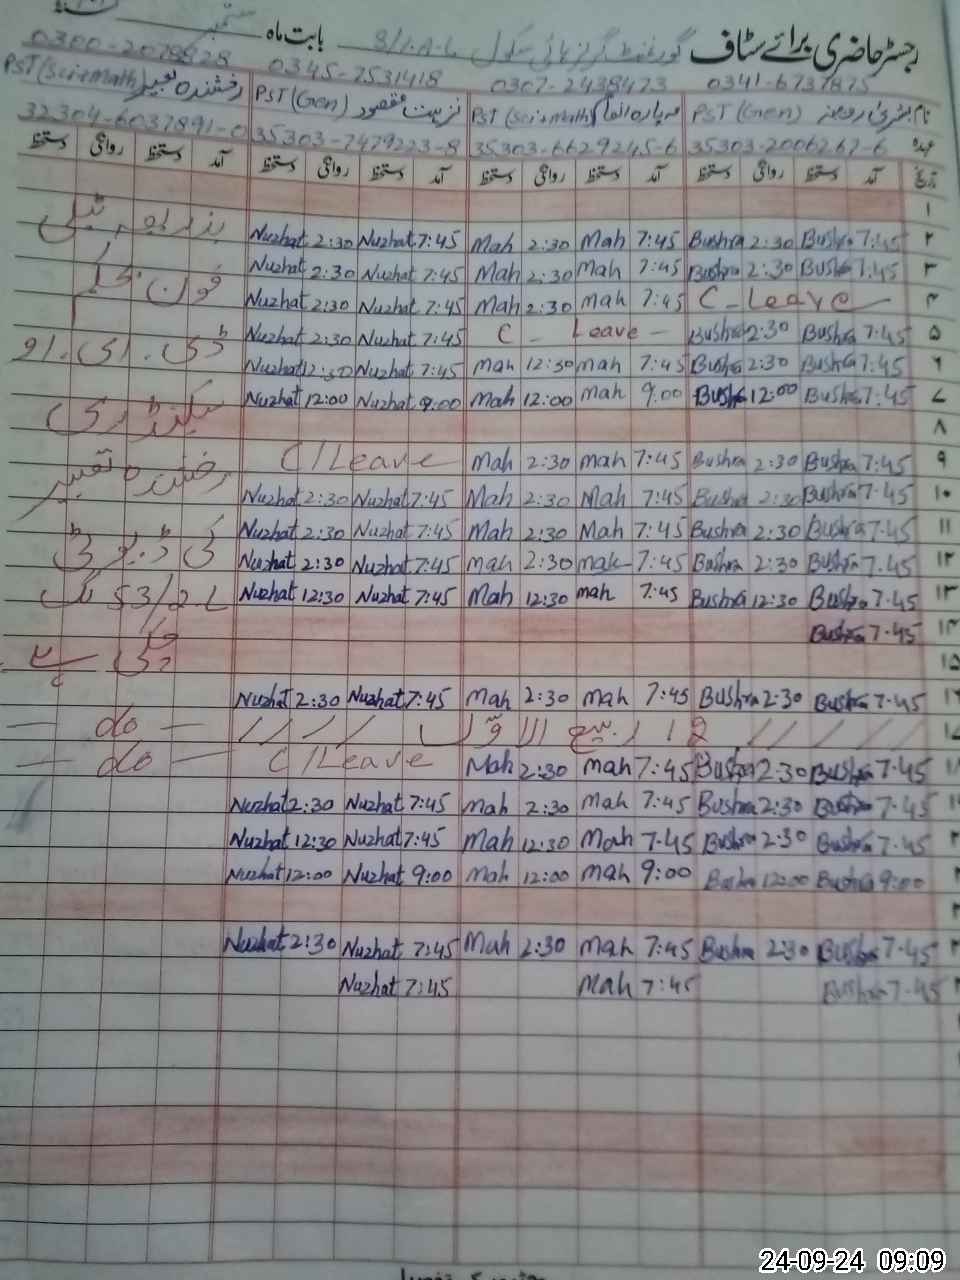 رجسٹر حاضری برائے سٹاف گورنمنٹ گرلز ہائی سکول 8/1.A.L بابت ماہ ستمبر
0341-6737875 0307-2438473 0345-7531418 0300-2078828
نام PST (Gen) PST (Sci-Math) نزہت مقصود PST (Gen) رخشندہ PST (Sci-Math)
عہدہ 35303-2006267-6 35303-6629245-6 35303-7479223-8 32304-6037891-0
تاریخ آمد دستخط روانگی دستخط آمد دستخط روانگی دستخط آمد دستخط روانگی دستخط آمد دستخط روانگی دستخط
۱
۲ 7:45 Bushra 2:30 Bushra 7:45 Mah 2:30 Mah 7:45 Nuzhat 2:30 Nuzhat
۳ 7:45 Bushra 2:30 Bushra 7:45 Mah 2:30 Mah 7:45 Nuzhat 2:30 Nuzhat
۴ C-Leave 7:45 Mah 2:30 Mah 7:45 Nuzhat 2:30 Nuzhat
۵ 7:45 Bushra 2:30 Bushra C - Leave - 7:45 Nuzhat 2:30 Nuzhat
۶ 7:45 Bushra 2:30 Bushra 7:45 Mah 12:30 Mah 7:45 Nuzhat 12:30 Nuzhat
۷ 7:45 Bushra 12:00 Bushra 9:00 Mah 12:00 Mah 9:00 Nuzhat 12:00 Nuzhat
۸
۹ 7:45 Bushra 2:30 Bushra 7:45 Mah 2:30 Mah C/Leave
۱۰ 7:45 Bushra 2:30 Bushra 7:45 Mah 2:30 Mah 7:45 Nuzhat 2:30 Nuzhat
۱۱ 7:45 Bushra 2:30 Bushra 7:45 Mah 2:30 Mah 7:45 Nuzhat 2:30 Nuzhat
۱۲ 7:45 Bushra 2:30 Bushra 7:45 Mah 2:30 Mah 7:45 Nuzhat 2:30 Nuzhat کی ڈیوٹی
۱۳ 7:45 Bushra 12:30 Bushra 7:45 Mah 12:30 Mah 7:45 Nuzhat 12:30 Nuzhat 53/2.L تک
۱۴ 7:45 Bushra
۱۵
۱۶ 7:45 Bushra 2:30 Bushra 7:45 Mah 2:30 Mah 7:45 Nuzhat 2:30 Nuzhat
12 ربیع الاول - do -
7:45 Bushra 2:30 Bushra 7:45 Mah 2:30 Mah C/Leave - do -
7:45 Bushra 2:30 Bushra 7:45 Mah 2:30 Mah 7:45 Nuzhat 2:30 Nuzhat
7:45 Bushra 2:30 Bushra 7:45 Mah 12:30 Mah 7:45 Nuzhat 12:30 Nuzhat
9:00 Bushra 12:00 Bushra 9:00 Mah 12:00 Mah 9:00 Nuzhat 12:00 Nuzhat
7:45 Bushra 2:30 Bushra 7:45 Mah 2:30 Mah 7:45 Nuzhat 2:30 Nuzhat
7:45 Bushra 7:45 Mah 7:45 Nuzhat
24-09-24 09:09